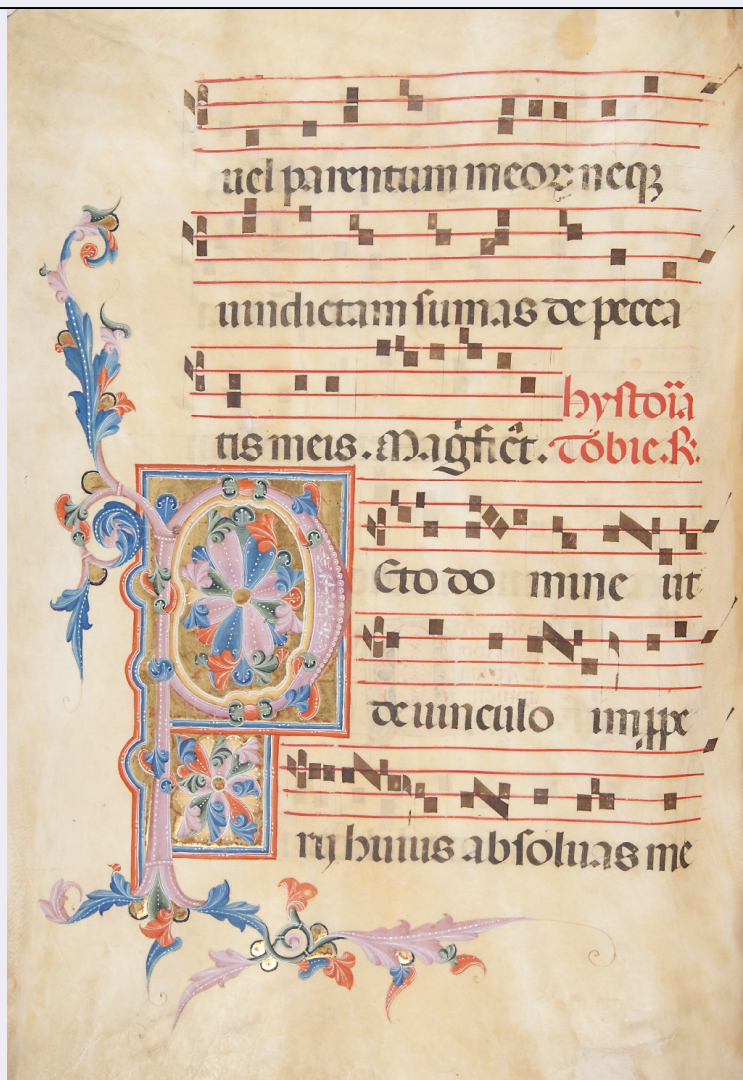 uel parentum meoꝝ neqꝫ
uindictam sumas de pecca
tis meis. Magfict. hystoria
Tobie. R.
P Eto do mine ut
de uinculo imppe
rij huius absoluas me